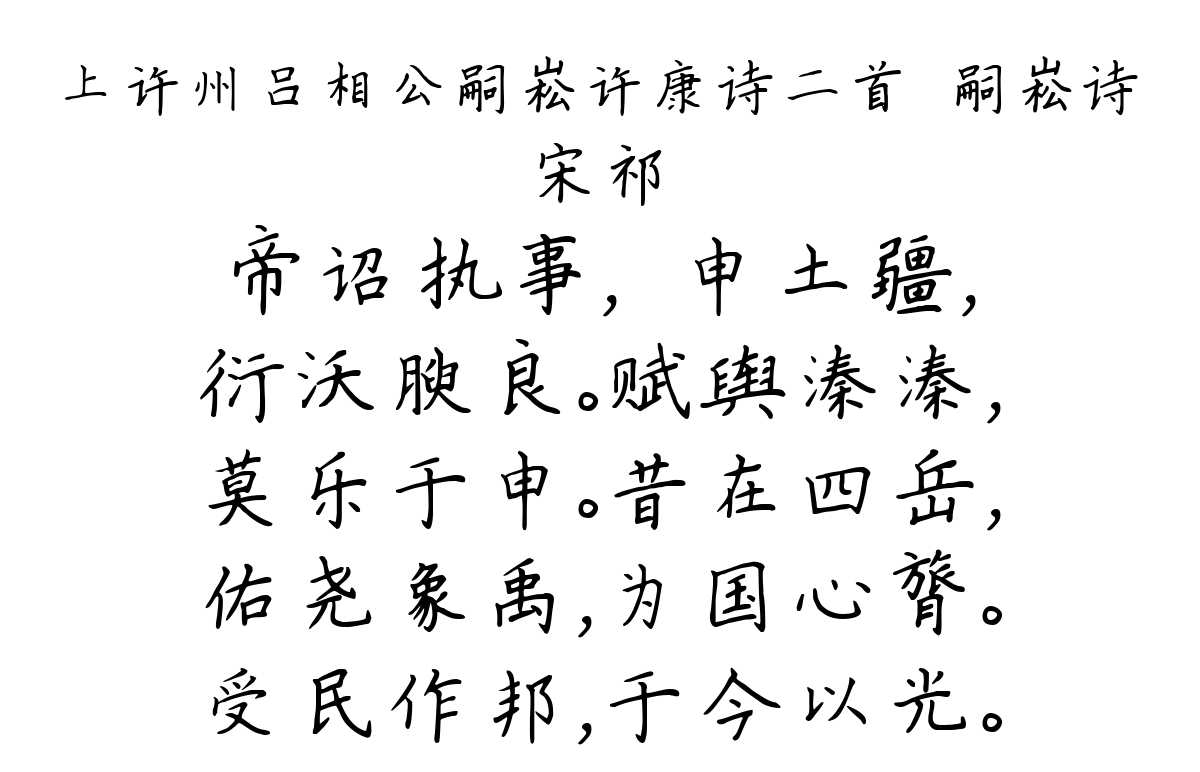 上许州吕相公嗣崧许康诗二首 嗣崧诗
宋祁
帝诏执事，申土疆，
衍沃腴良。赋舆溱溱，
莫乐于申。昔在四岳，
佑尧象禹，为国心膂。
受民作邦，于今以光。